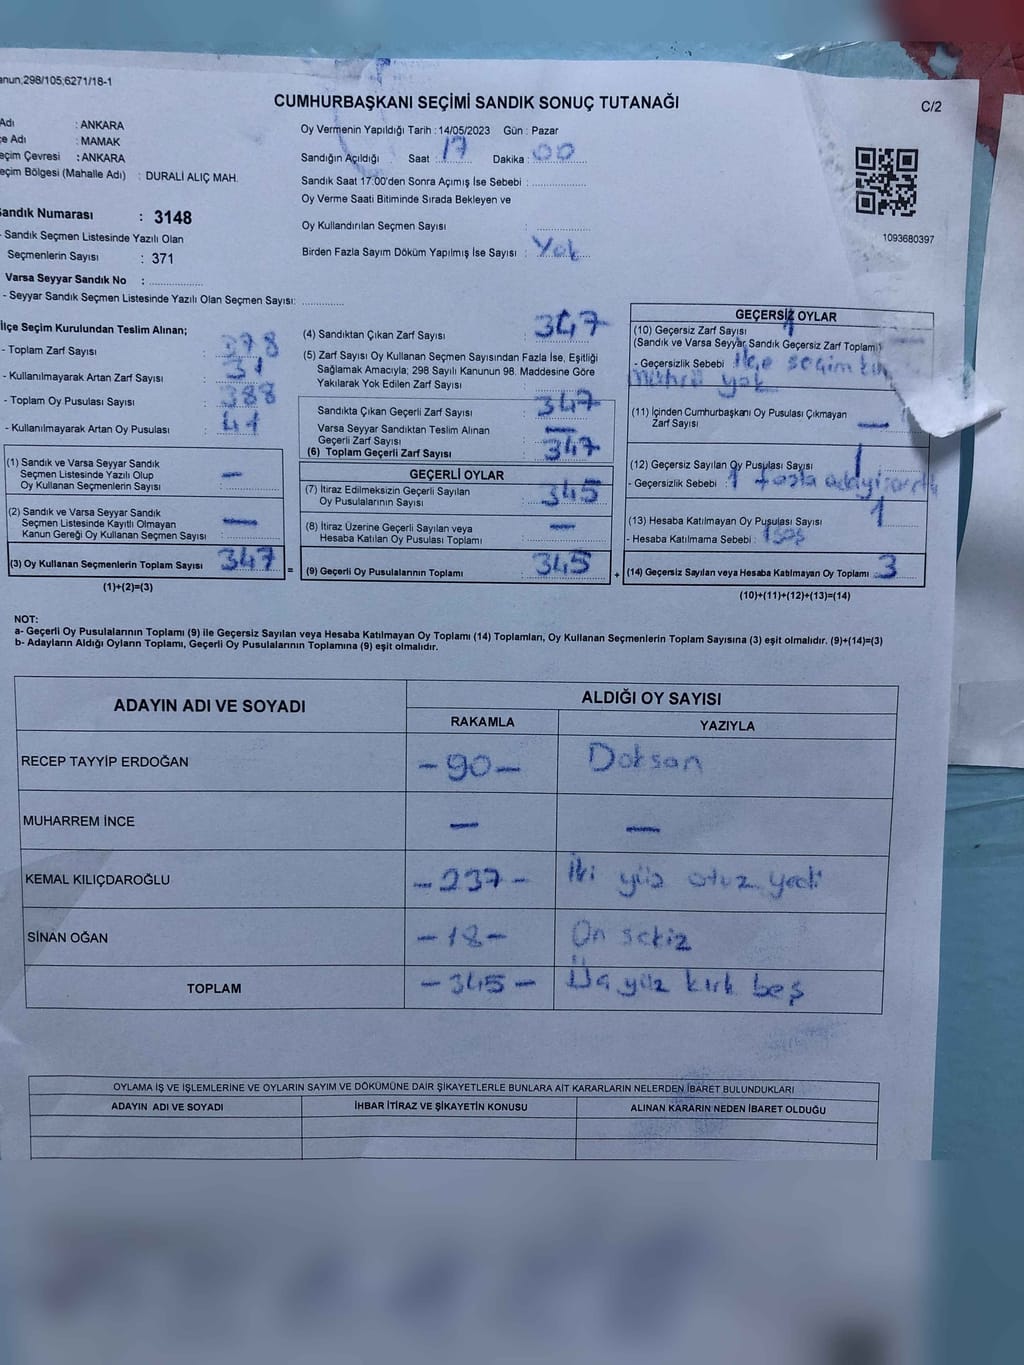 anun,298/105,6271/18-1
CUMHURBAŞKANI SEÇİMİ SANDIK SONUÇ TUTANAĞI
C/2
Adı : ANKARA
çe Adı : MAMAK
eçim Çevresi : ANKARA
eçim Bölgesi (Mahalle Adı) : DURALİ ALIÇ MAH.
Sandık Numarası : 3148
- Sandık Seçmen Listesinde Yazılı Olan
Seçmenlerin Sayısı : 371
Varsa Seyyar Sandık No :
- Seyyar Sandık Seçmen Listesinde Yazılı Olan Seçmen Sayısı:
Oy Vermenin Yapıldığı Tarih : 14/05/2023 Gün : Pazar
Sandığın Açıldığı Saat : 17 Dakika : 00
Sandık Saat 17:00'den Sonra Açımış İse Sebebi :
Oy Verme Saati Bitiminde Sırada Bekleyen ve
Oy Kullandırılan Seçmen Sayısı :
Birden Fazla Sayım Döküm Yapılmış İse Sayısı : Yok
1093680397
İlçe Seçim Kurulundan Teslim Alınan;
- Toplam Zarf Sayısı : 378
- Kullanılmayarak Artan Zarf Sayısı : 31
- Toplam Oy Pusulası Sayısı : 388
- Kullanılmayarak Artan Oy Pusulası : 41
(1) Sandık ve Varsa Seyyar Sandık
Seçmen Listesinde Yazılı Olup
Oy Kullanan Seçmenlerin Sayısı : —
(2) Sandık ve Varsa Seyyar Sandık
Seçmen Listesinde Kayıtlı Olmayan
Kanun Gereği Oy Kullanan Seçmen Sayısı : —
(3) Oy Kullanan Seçmenlerin Toplam Sayısı 347 =
(1)+(2)=(3)
(4) Sandıktan Çıkan Zarf Sayısı : 347
(5) Zarf Sayısı Oy Kullanan Seçmen Sayısından Fazla İse, Eşitliği
Sağlamak Amacıyla; 298 Sayılı Kanunun 98. Maddesine Göre
Yakılarak Yok Edilen Zarf Sayısı :
Sandıkta Çıkan Geçerli Zarf Sayısı : 347
Varsa Seyyar Sandıktan Teslim Alınan
Geçerli Zarf Sayısı : —
(6) Toplam Geçerli Zarf Sayısı : 347
GEÇERLİ OYLAR
(7) İtiraz Edilmeksizin Geçerli Sayılan
Oy Pusulalarının Sayısı : 345
(8) İtiraz Üzerine Geçerli Sayılan veya
Hesaba Katılan Oy Pusulası Toplamı : —
(9) Geçerli Oy Pusulalarının Toplamı : 345 +
GEÇERSİZ OYLAR
(10) Geçersiz Zarf Sayısı 1
(Sandık ve Varsa Seyyar Sandık Geçersiz Zarf Toplamı)
- Geçersizlik Sebebi : ilçe seçim
mührü yok
(11) İçinden Cumhurbaşkanı Oy Pusulası Çıkmayan
Zarf Sayısı : —
(12) Geçersiz Sayılan Oy Pusulası Sayısı : 1
- Geçersizlik Sebebi : 1 fazla
(13) Hesaba Katılmayan Oy Pusulası Sayısı : 1
- Hesaba Katılmama Sebebi :
(14) Geçersiz Sayılan veya Hesaba Katılmayan Oy Toplamı 3
(10)+(11)+(12)+(13)=(14)
NOT:
a- Geçerli Oy Pusulalarının Toplamı (9) ile Geçersiz Sayılan veya Hesaba Katılmayan Oy Toplamı (14) Toplamları, Oy Kullanan Seçmenlerin Toplam Sayısına (3) eşit olmalıdır. (9)+(14)=(3)
b- Adayların Aldığı Oyların Toplamı, Geçerli Oy Pusulalarının Toplamına (9) eşit olmalıdır.
ADAYIN ADI VE SOYADI
ALDIĞI OY SAYISI
RAKAMLA YAZIYLA
RECEP TAYYİP ERDOĞAN -90- Doksan
MUHARREM İNCE — —
KEMAL KILIÇDAROĞLU -237- İki yüz otuz yedi
SİNAN OĞAN -18- On sekiz
TOPLAM -345- Üç yüz kırk beş
OYLAMA İŞ VE İŞLEMLERİNE VE OYLARIN SAYIM VE DÖKÜMÜNE DAİR ŞİKAYETLERLE BUNLARA AİT KARARLARIN NELERDEN İBARET BULUNDUKLARI
ADAYIN ADI VE SOYADI
İHBAR İTİRAZ VE ŞİKAYETİN KONUSU
ALINAN KARARIN NEDEN İBARET OLDUĞU